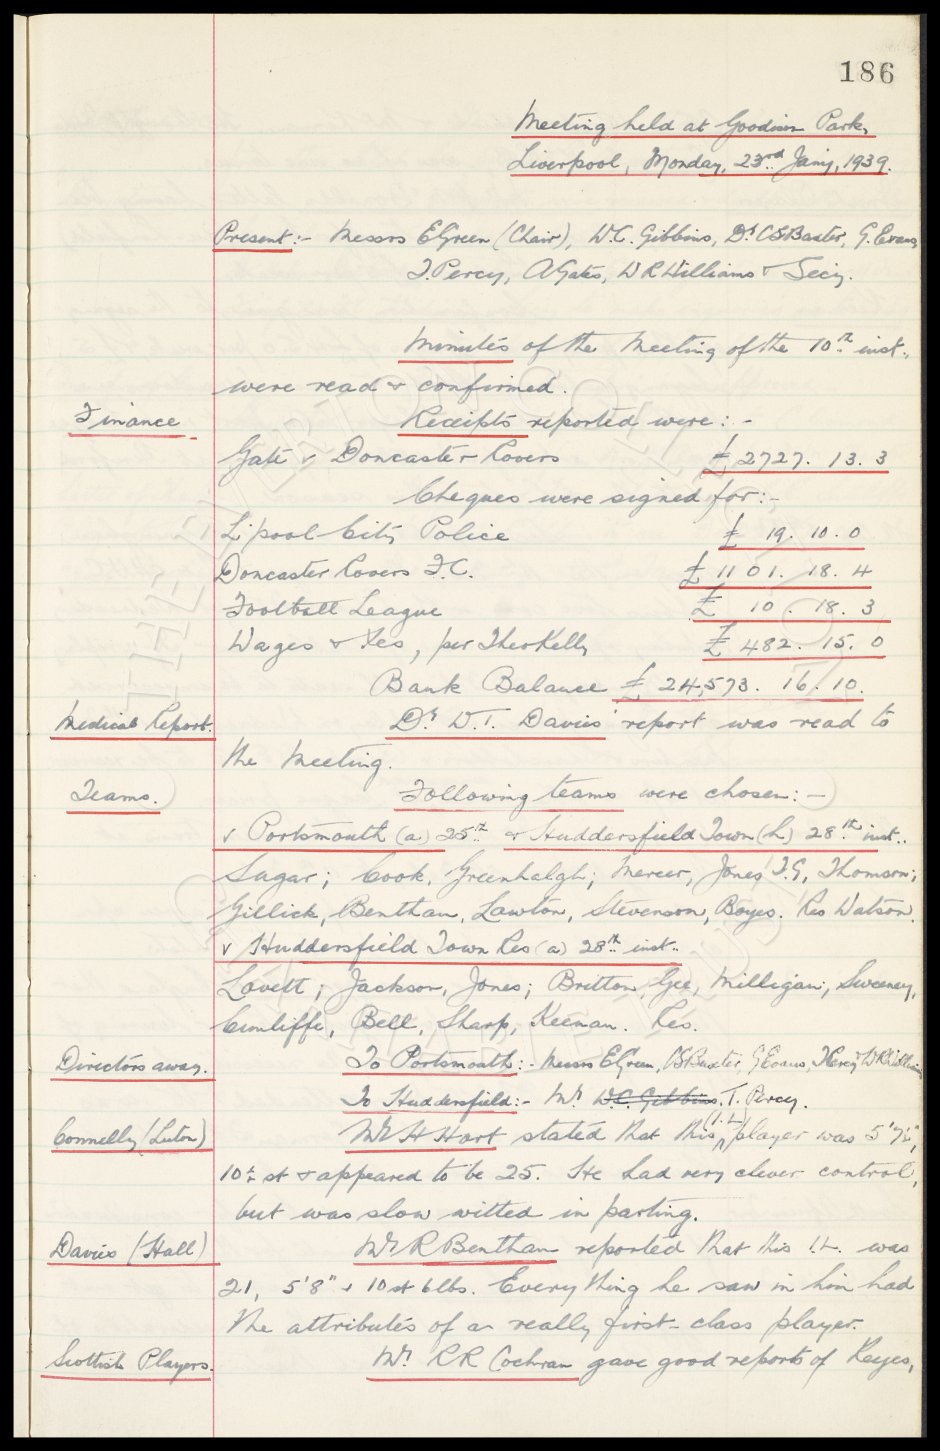 186
Meeting held at Goodison Park,
Liverpool, Monday, 23rd Jan'y, 1939.
Present:- Messrs E Green (Chair), W.C. Gibbins, Dr C S Baxter, G. Evans,
T. Percy, A Gates, W R Williams & Sec'y.
Minutes of the Meeting of the 10th inst.,
were read & confirmed.
Finance Receipts reported were:-
Gate v Doncaster Rovers £2727. 13. 3
Cheques were signed for:-
L'pool City Police £ 19. 10. 0
Doncaster Rovers F.C. £ 1101. 18. 4
Football League £ 10. 18. 3
Wages & Xes, per Theo Kelly £ 482. 15. 0
Bank Balance £ 24,573. 16. 10.
Medical Report. Dr W.T. Davies' report was read to
the Meeting.
Teams. Following teams were chosen:-
v Portsmouth (a) 25th & Huddersfield Town (h) 28th inst..
Sagar; Cook, Greenhalgh; Mercer, Jones T.G, Thomson;
Gillick, Bentham, Lawton, Stevenson, Boyes. Res Watson.
v Huddersfield Town Res (a) 28th inst..
Lovett; Jackson, Jones; Britton, Gee, Milligan; Sweeney,
Cunliffe, Bell, Sharp, Keenan. Res.
Directors away. To Portsmouth:- Messrs E Green, C S Baxter, G Evans, T Percy & W R Williams
To Huddersfield:- Mr W.C. Gibbins. T. Percy.
Connelly (Luton) Mr H Hart stated that this (I.L) player was 5'7½",
10½ st & appeared to be 25. He had very clever control,
but was slow witted in parting.
Davies (Hall) Mr R Bentham reported that this I.L. was
21, 5'8" & 10 st 6 lbs. Everything he saw in him had
the attributes of a really first-class player.
Scottish Players. Mr R R Cochran gave good reports of Keyes,